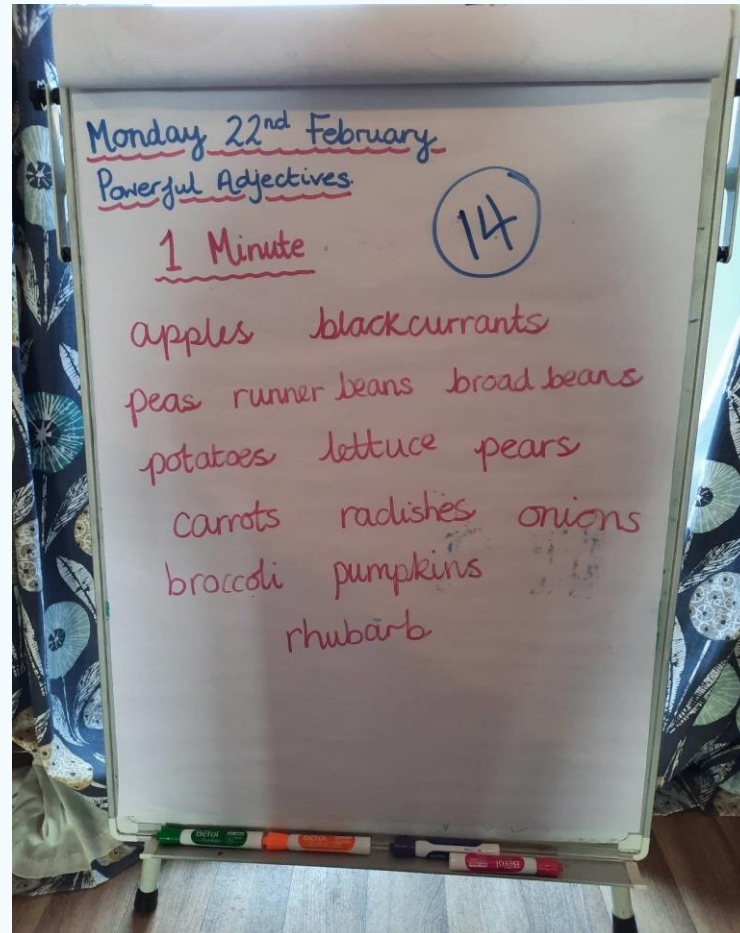 Monday 22nd February
Powerful Adjectives.
1 Minute 14
apples blackcurrants
peas runner beans broad beans
potatoes lettuce pears
carrots radishes onions
broccoli pumpkins
rhubarb
Berol
Berol
Berol